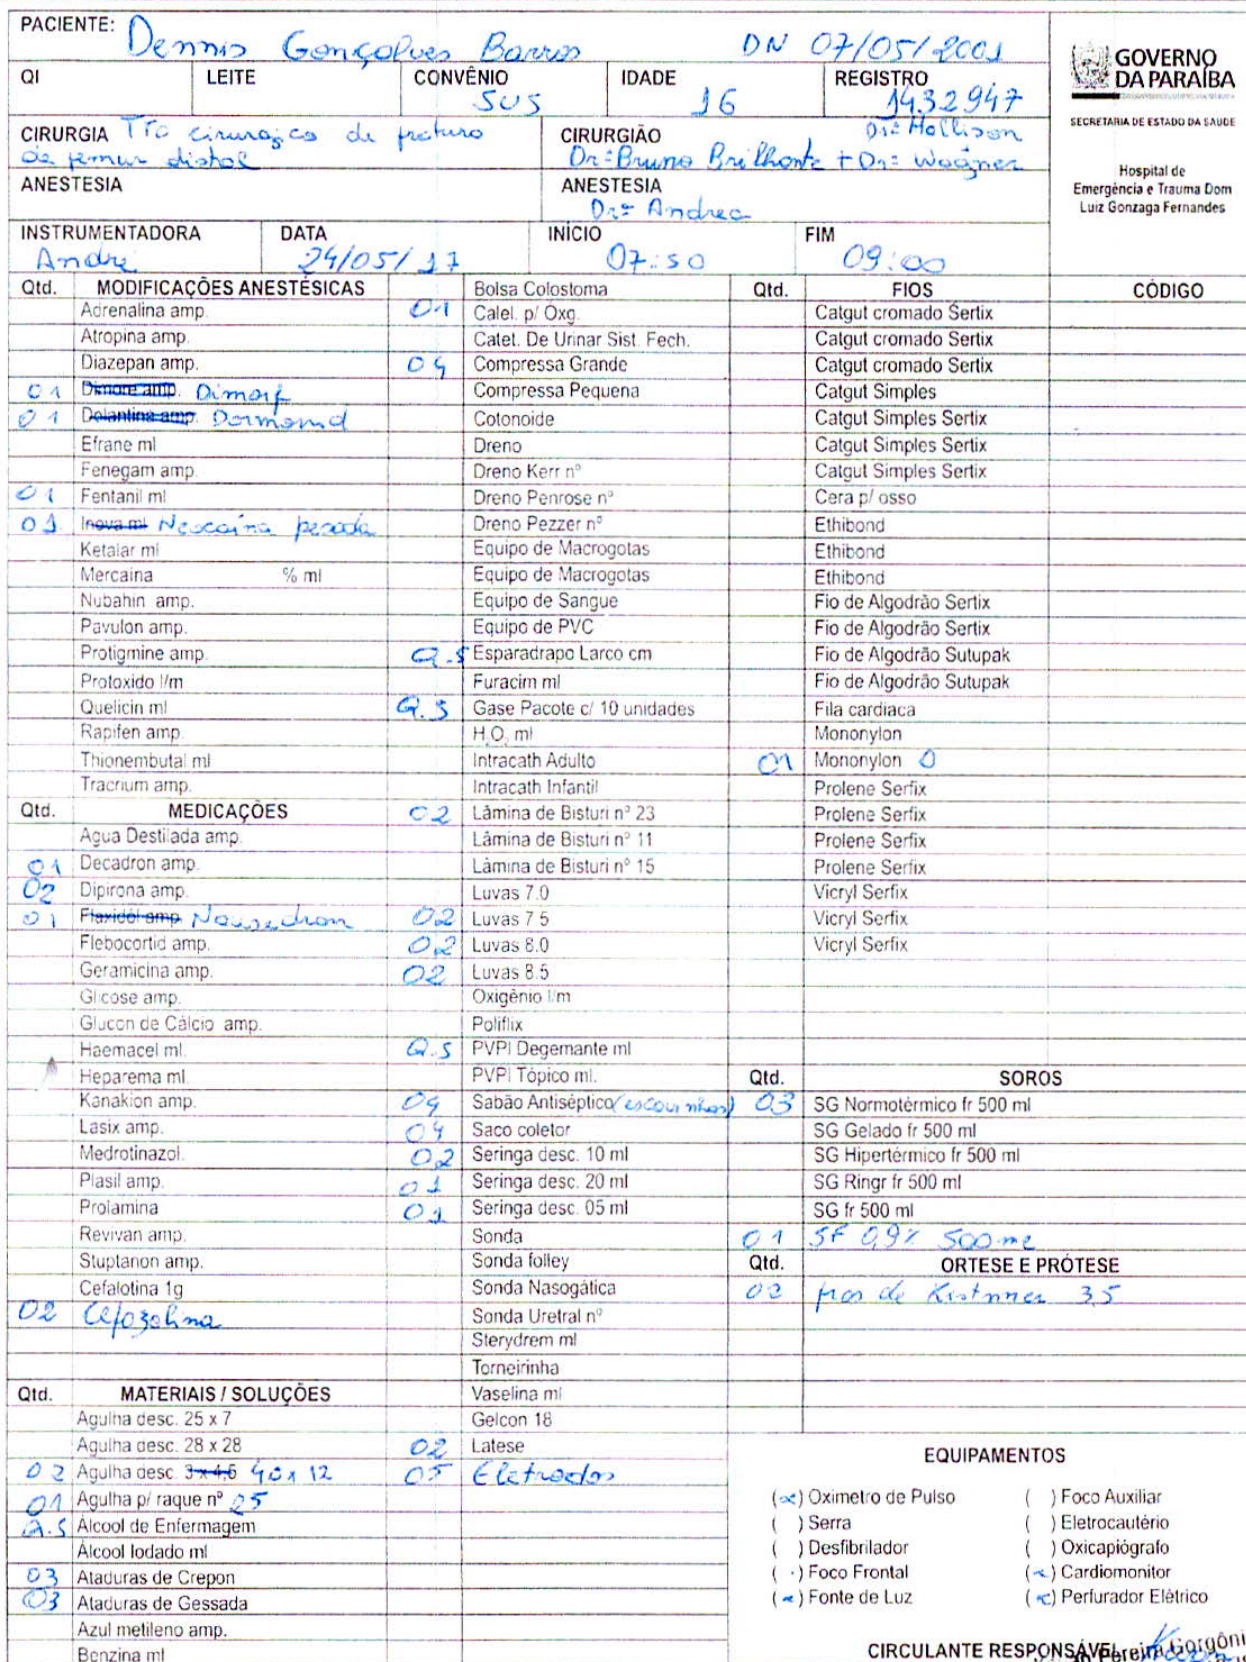 PACIENTE: Dennis Gonçalves Barros DN 07/05/2001
GOVERNO
DA PARAÍBA
SECRETARIA DE ESTADO DA SAÚDE
Hospital de
Emergência e Trauma Dom
Luiz Gonzaga Fernandes
QI LEITE CONVÊNIO IDADE REGISTRO
SUS 16 1432947
CIRURGIA Tto cirurgico de fratura
de femur distal
CIRURGIÃO Drº Hallison
Drº Bruno Brilhante + Drº Wagner
ANESTESIA ANESTESIA
Drª Andrea
INSTRUMENTADORA DATA INÍCIO FIM
André 24/05/17 07:50 09:00
Qtd. MODIFICAÇÕES ANESTÉSICAS
Adrenalina amp.
Atropina amp.
Diazepan amp.
01 Dimore amp. Dimorf
01 Dolantina amp. Dormonid
Efrane ml
Fenegam amp.
01 Fentanil ml
01 Inova ml Neocaína pesada
Ketalar ml
Mercaina % ml
Nubahin amp.
Pavulon amp.
Protigmine amp.
Protoxido l/m
Quelicin ml
Rapifen amp.
Thionembutal ml
Tracrium amp.
Qtd. MEDICAÇÕES
Agua Destilada amp.
01 Decadron amp.
02 Dipirona amp.
01 Flaxidol amp. Nausedron
Flebocortid amp.
Geramicina amp.
Glicose amp.
Glucon de Cálcio amp.
Haemacel ml.
Heparema ml
Kanakion amp.
Lasix amp.
Medrotinazol.
Plasil amp.
Prolamina
Revivan amp.
Stuptanon amp.
Cefalotina 1g
02 Cefozolina
Qtd. MATERIAIS / SOLUÇÕES
Agulha desc. 25 x 7
Agulha desc. 28 x 28
02 Agulha desc. 3 x 4,5 40 x 12
01 Agulha p/ raque nº 25
Q.S Álcool de Enfermagem
Álcool Iodado ml
03 Ataduras de Crepon
03 Ataduras de Gessada
Azul metileno amp.
Benzina ml
Bolsa Colostoma
01 Catel. p/ Oxg.
Catet. De Urinar Sist. Fech.
04 Compressa Grande
Compressa Pequena
Cotonoide
Dreno
Dreno Kerr nº
Dreno Penrose nº
Dreno Pezzer nº
Equipo de Macrogotas
Equipo de Macrogotas
Equipo de Sangue
Equipo de PVC
Q.S Esparadrapo Larco cm
Furacim ml
Q.S Gase Pacote c/ 10 unidades
H.O, ml
Intracath Adulto
Intracath Infantil
02 Lâmina de Bisturi nº 23
Lâmina de Bisturi nº 11
Lâmina de Bisturi nº 15
Luvas 7.0
02 Luvas 7 5
02 Luvas 8.0
02 Luvas 8.5
Oxigênio l/m
Poliflix
Q.S PVPI Degemante ml
PVPI Tópico ml.
04 Sabão Antiséptico (escovinhas)
04 Saco coletor
02 Seringa desc. 10 ml
01 Seringa desc. 20 ml
01 Seringa desc. 05 ml
Sonda
Sonda folley
Sonda Nasogática
Sonda Uretral nº
Sterydrem ml
Torneirinha
Vaselina ml
Gelcon 18
02 Latese
05 Eletrodos
Qtd. FIOS CÓDIGO
Catgut cromado Sertix
Catgut cromado Sertix
Catgut cromado Sertix
Catgut Simples
Catgut Simples Sertix
Catgut Simples Sertix
Catgut Simples Sertix
Cera p/ osso
Ethibond
Ethibond
Ethibond
Fio de Algodrão Sertix
Fio de Algodrão Sertix
Fio de Algodrão Sutupak
Fio de Algodrão Sutupak
Fila cardiaca
Mononylon
01 Mononylon 0
Prolene Serfix
Prolene Serfix
Prolene Serfix
Prolene Serfix
Vicryl Serfix
Vicryl Serfix
Vicryl Serfix
Qtd. SOROS
03 SG Normotérmico fr 500 ml
SG Gelado fr 500 ml
SG Hipertérmico fr 500 ml
SG Ringr fr 500 ml
SG fr 500 ml
01 SF 0,9% 500 ml
Qtd. ORTESE E PRÓTESE
02 fios de Kistnner 3.5
EQUIPAMENTOS
(x) Oximetro de Pulso ( ) Foco Auxiliar
( ) Serra ( ) Eletrocautério
( ) Desfibrilador ( ) Oxicapiógrafo
( ) Foco Frontal (x) Cardiomonitor
(x) Fonte de Luz (x) Perfurador Elétrico
CIRCULANTE RESPONSÁVEL Pereira Gorgôni